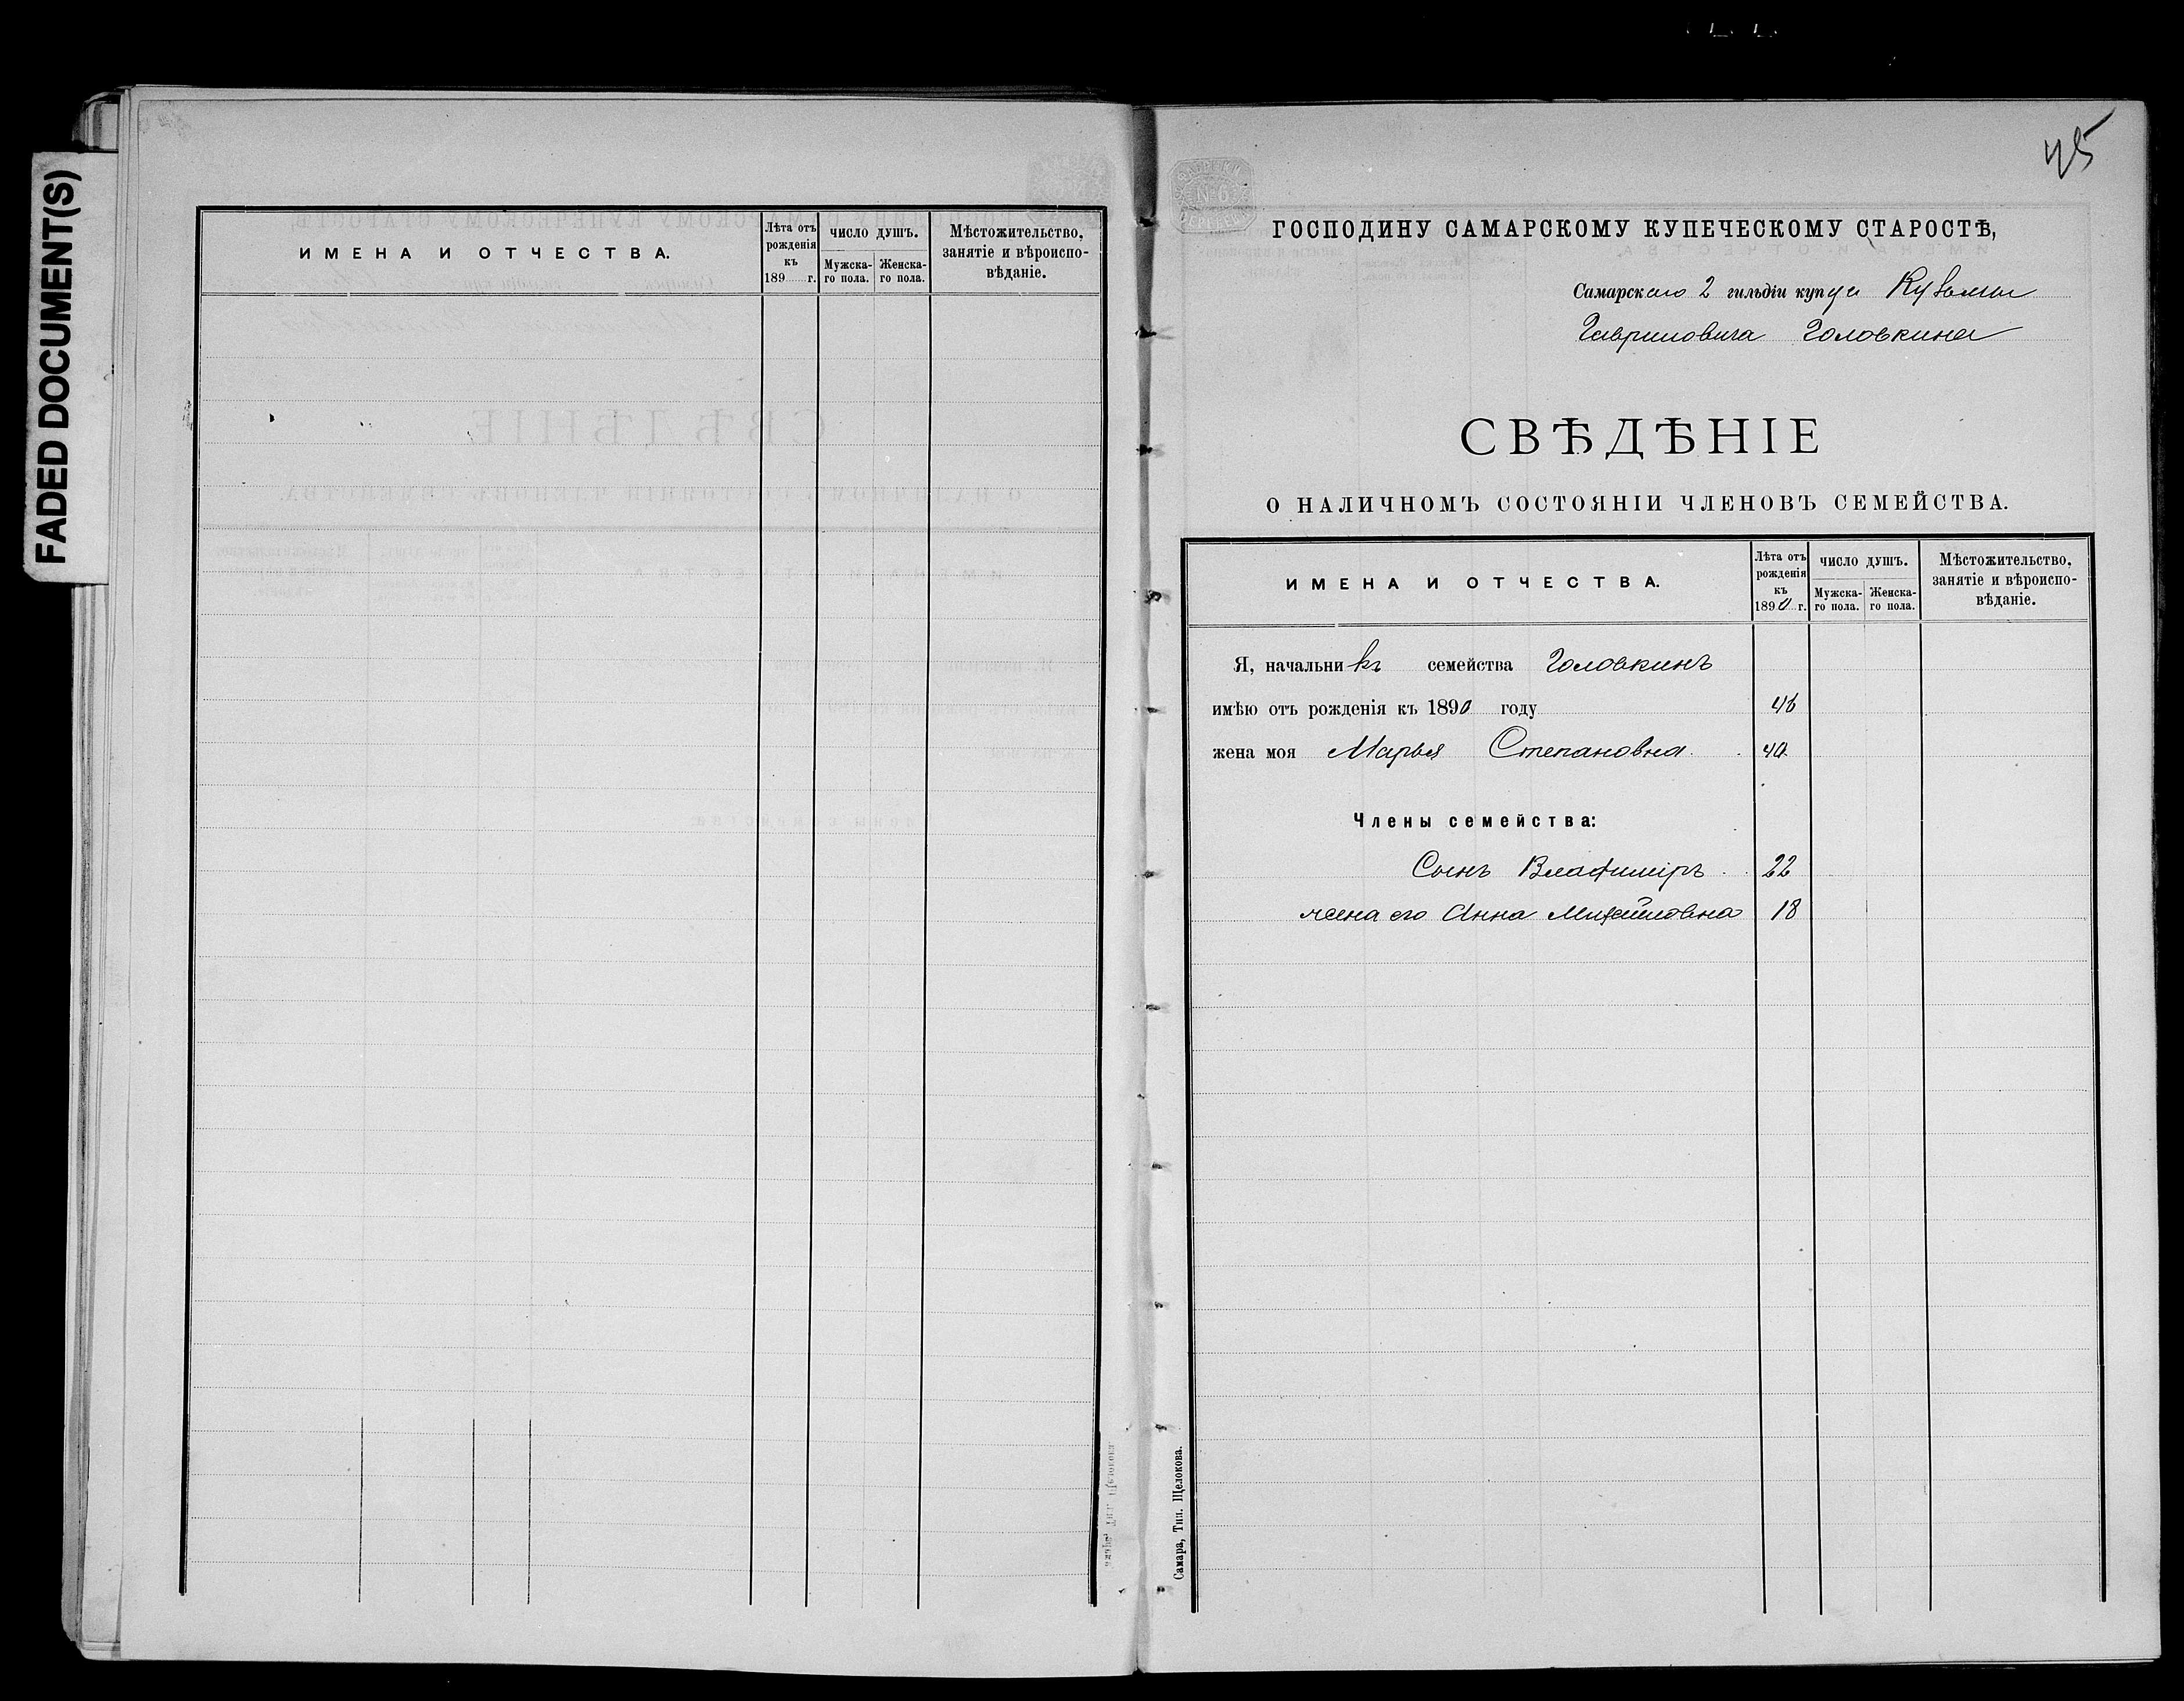 FADED DOCUMENT(S)
ИМЕНА И ОТЧЕСТВА.
Лѣта отъ рожденія къ 189 г.
ЧИСЛО ДУШЪ.
Мужска-го пола.
Женска-го пола.
Мѣстожительство, занятіе и вѣроиспо-вѣданіе.
45
ГОСПОДИНУ САМАРСКОМУ КУПЕЧЕСКОМУ СТАРОСТѢ,
Самарскаго 2 гильдіи купца Кузьмы
Гавриловича Головкина
СВѢДѢНІЕ
О НАЛИЧНОМЪ СОСТОЯНІИ ЧЛЕНОВЪ СЕМЕЙСТВА.
ИМЕНА И ОТЧЕСТВА.
Лѣта отъ рожденія къ 1890 г.
ЧИСЛО ДУШЪ.
Мужска-го пола.
Женска-го пола.
Мѣстожительство, занятіе и вѣроиспо-вѣданіе.
Я, начальникъ семейства Головкинъ
имѣю отъ рожденія къ 1890 году 46
жена моя Марья Степановна 40
Члены семейства:
Сынъ Владимiръ 22
жена его Анна Михайловна 18
Самара, Тип. Щелокова.